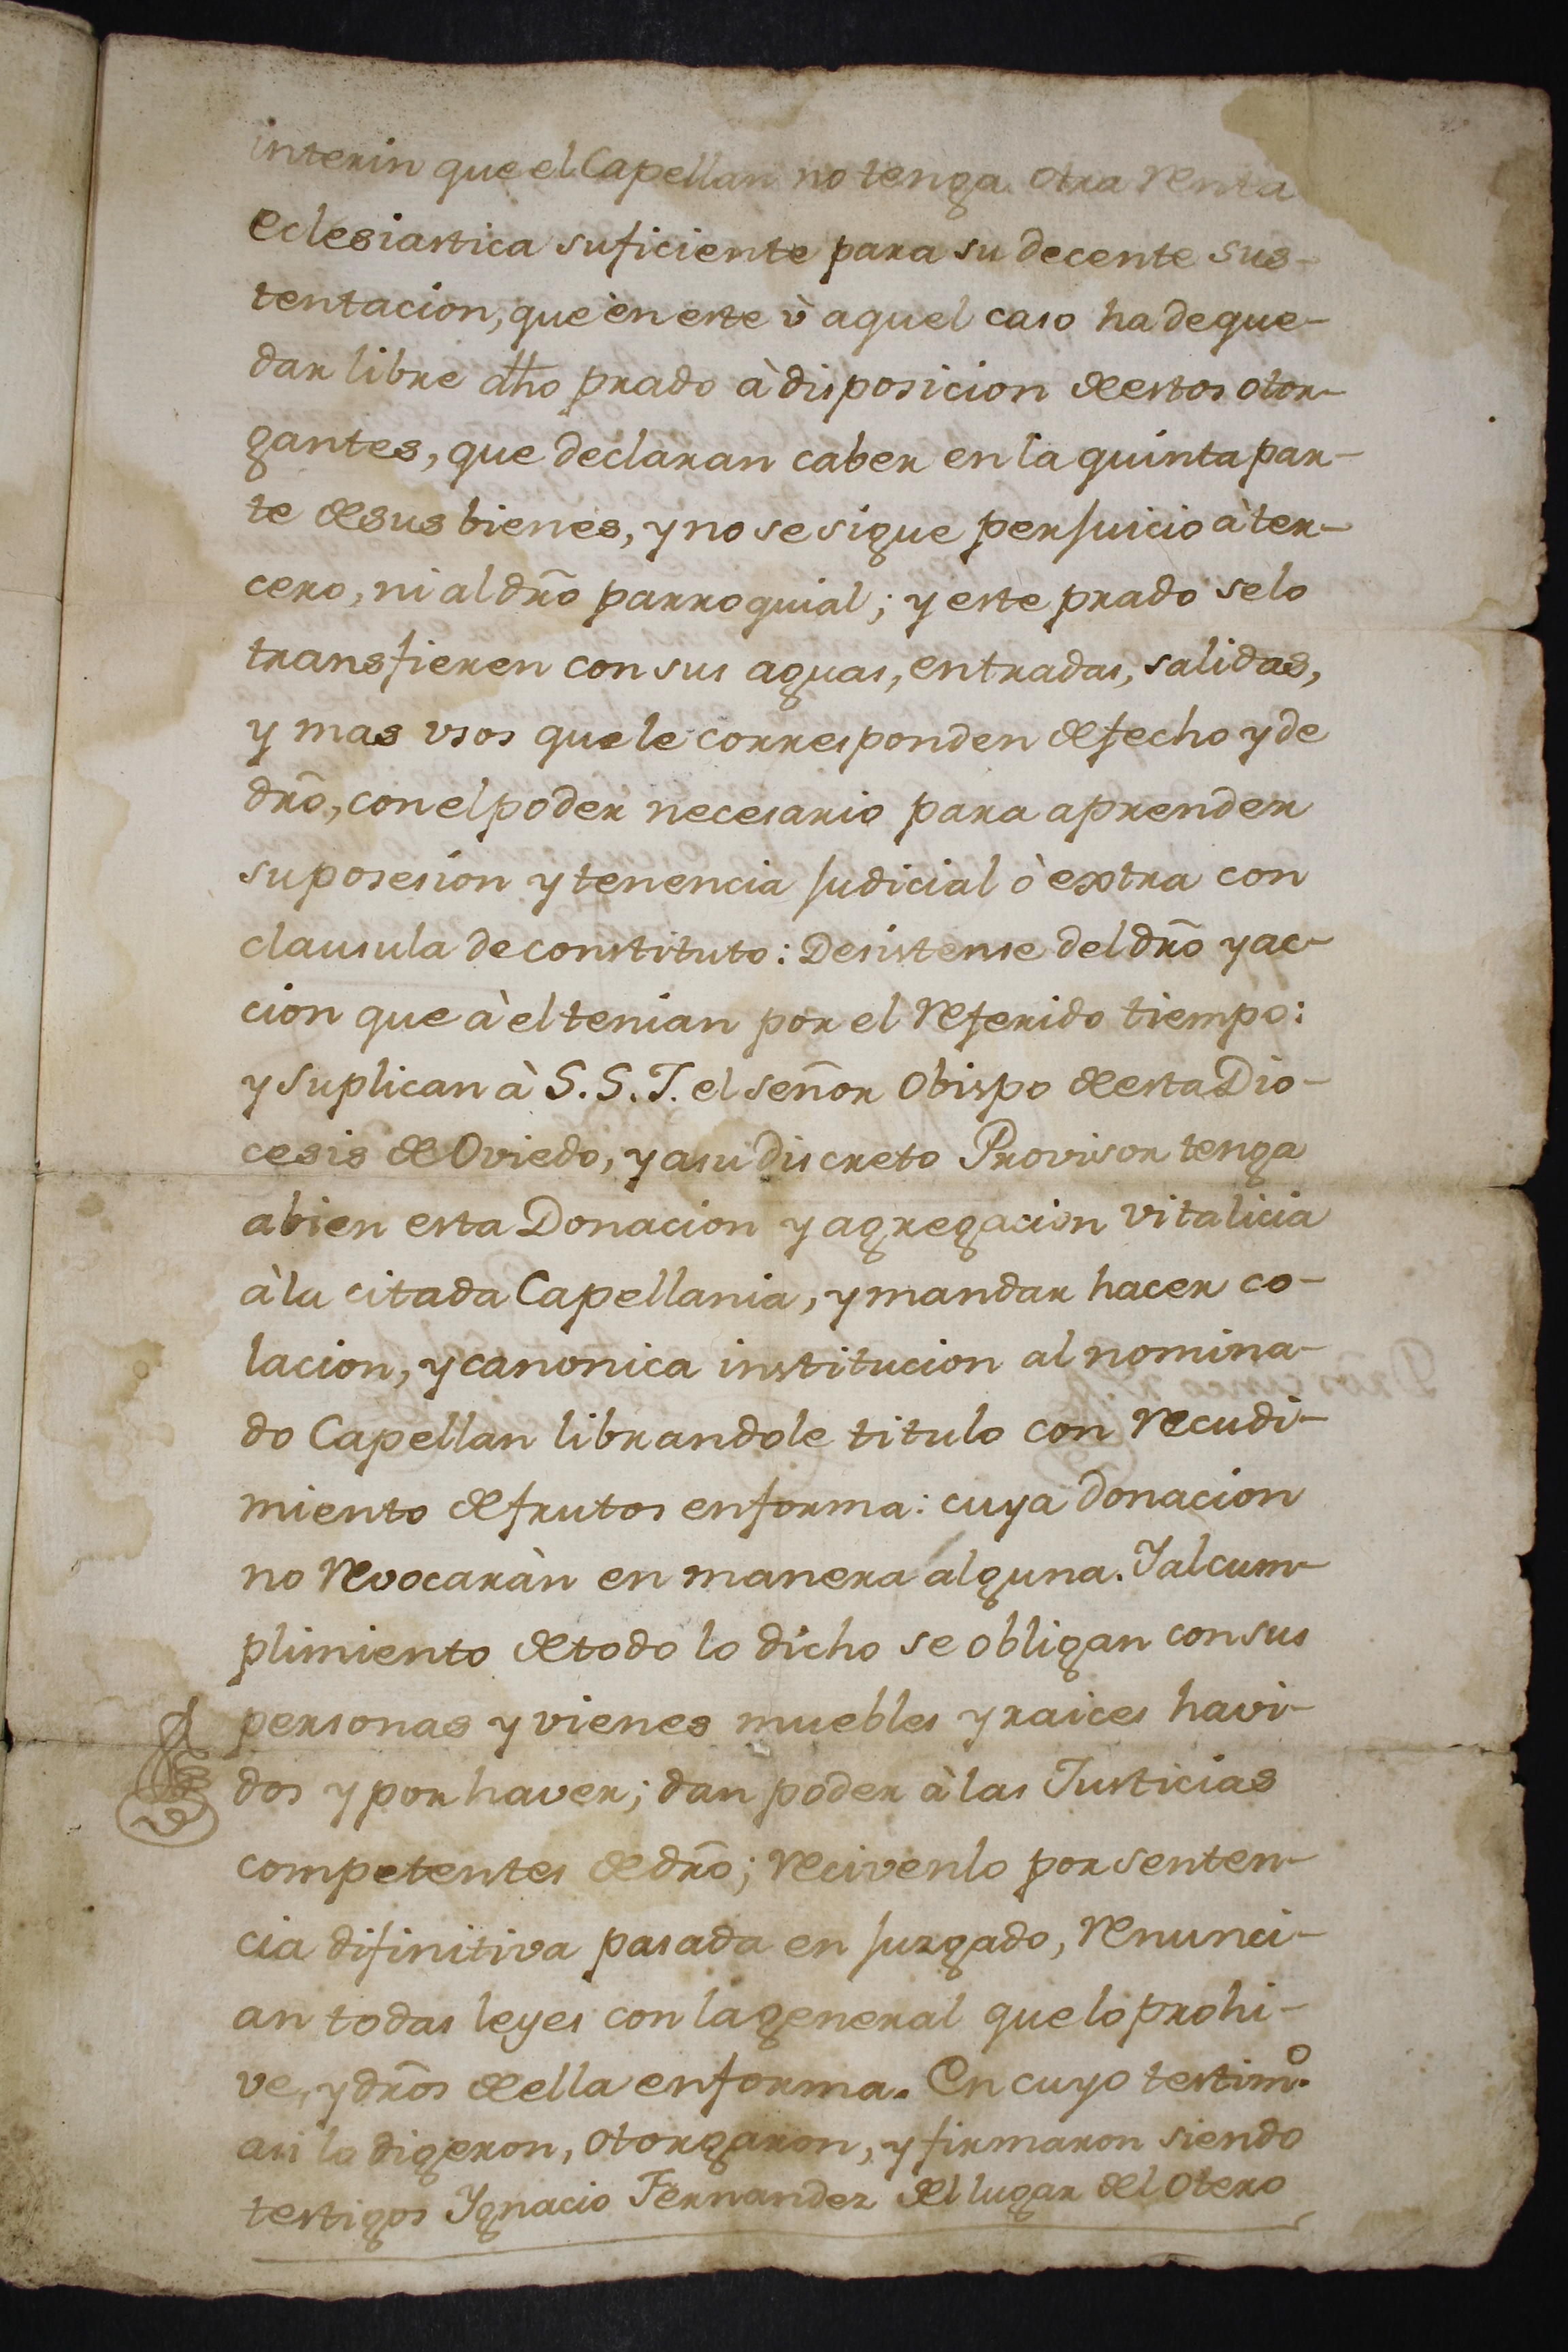 interin que el Capellan no tenga otra renta
eclesiastica suficiente para su decente sus-
tentacion, que en este ù aquel caso ha de que-
dar libre dho prado à disposicion de estos otor-
gantes, que declaran caber en la quinta par-
te de sus bienes, y no se sigue perjuicio à ter-
cero, ni al dr̃o parroquial; y este prado se lo
transfieren con sus aguas, entradas, salidas,
y mas vsos que le corresponden de fecho y de
dr̃o, con el poder necesario para aprender
su posesion y tenencia judicial ò extra con
clausula de constituto: Desistense del dr̃o y ac-
cion que à el tenian por el referido tiempo:
y suplican à S. S. I. el señor Obispo de esta Dio-
cesis de Oviedo, y a su discreto Provisor tenga
a bien esta Donacion y agregacion vitalicia
à la citada Capellania, y mandar hacer co-
lacion, y canonica institucion al nomina-
do Capellan librandole titulo con recudi-
miento de frutos en forma: cuya donacion
no revocaràn en manera alguna. Y al cum-
plimiento de todo lo dicho se obligan con sus
personas y vienes muebles y raices havi-
dos y por haver; dan poder à las Justicias
competentes de dr̃o; recivenlo por senten-
cia difinitiva pasada en juzgado, renunci-
an todas leyes con la general que lo prohi-
ve, y dr̃os de ella en forma. En cuyo testim.º
asi lo digeron, otorgaron, y firmaron siendo
testigos Ygnacio Fernandez del lugar del Otero